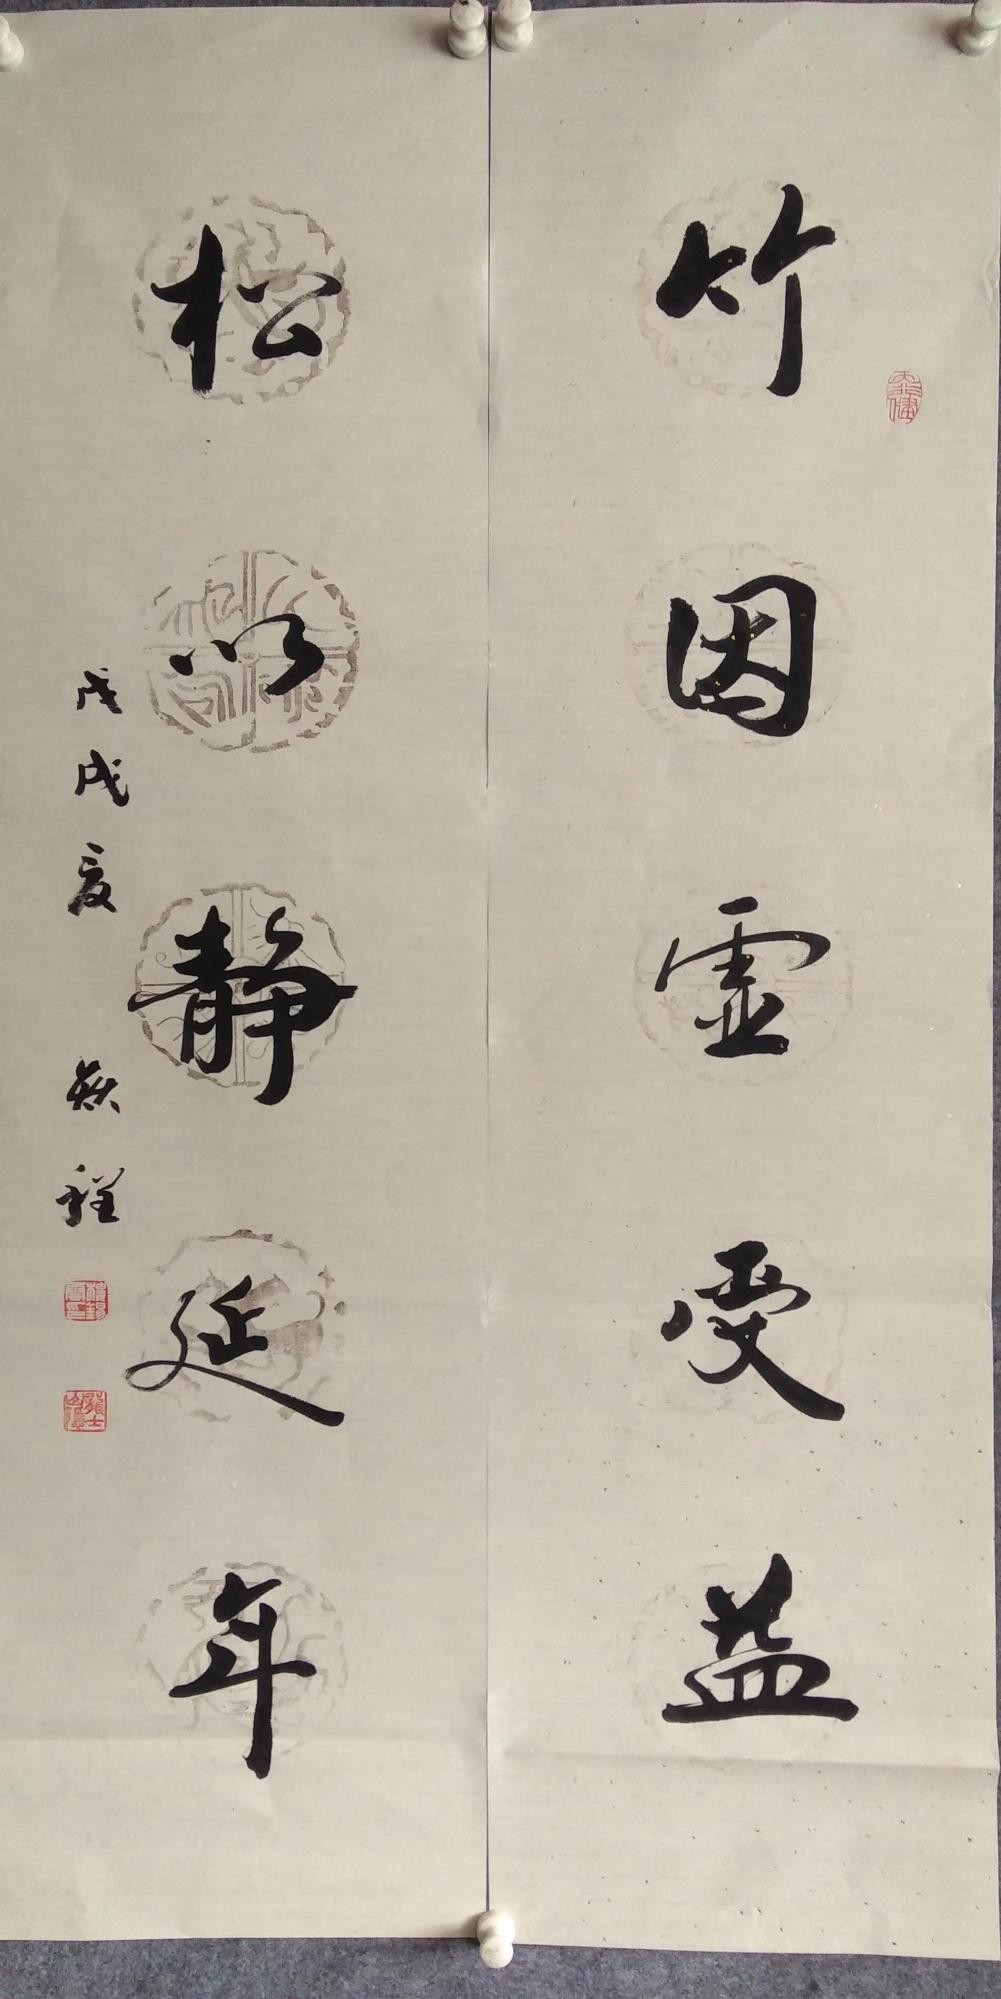 竹因虚受益
松以静延年
戊戌夏
程